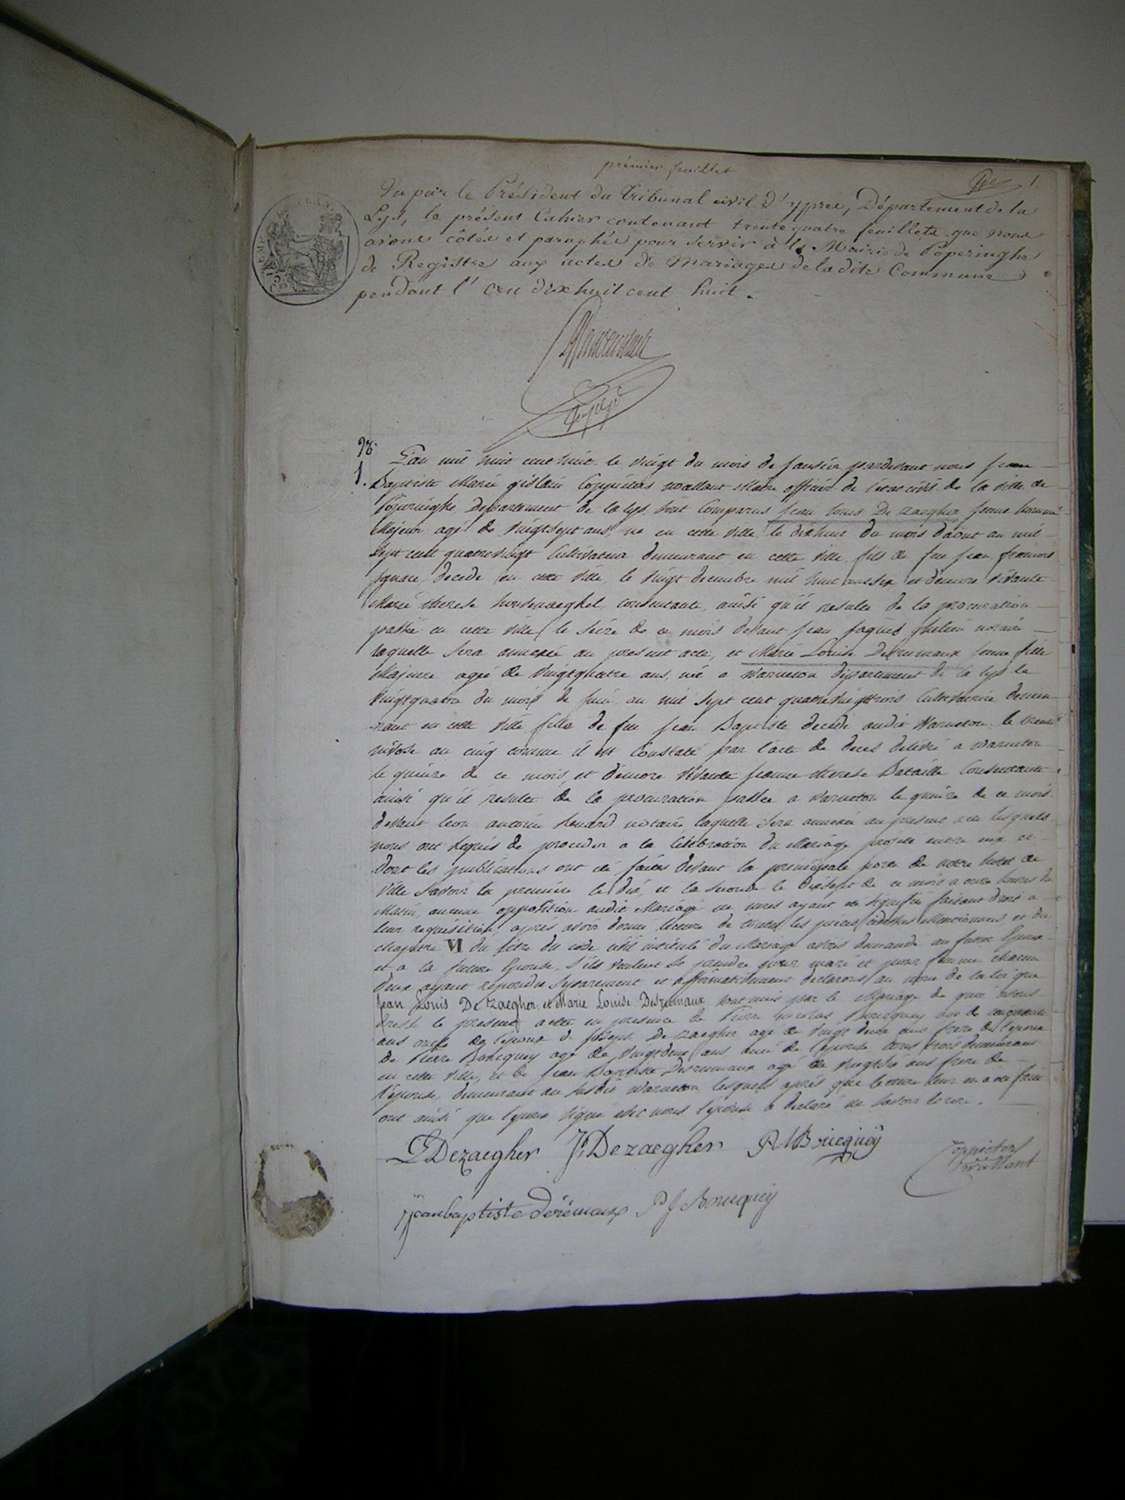 premier feuillet
1
Vu par le Président du Tribunal civil d'ypres, Département de la
Lys, le présent Cahier contenant trente quatre feuillets que nous
avons côtés et paraphés pour servir à la Mairie de Poperinghe
de Registre aux actes de Mariages de la dite Commune
pendant l'an dixhuit cent huit.
1.
L'an mil huit cent huit le vingt du mois de Janvier pardevant nous Jean
Baptiste Marie Gislain Coppieters Wallant Maire officier de l'état civil de la ville de
Poperinghe Departement de la Lys sont Comparus Jean Louis De Zaegher Jeune homme
Majeur agé de vingt sept ans, né en cette ville le dixhuit du mois daout an mil
sept cent quatrevingt Cultivateur demeurant en cette ville fils de feu Jean francois
Ignace, decede en cette ville le vingt decembre mil huit cent six et demeure vivante
Marie therese consentante, ainsi qu'il resulte de la procuration
passée en cette ville le seize de ce mois devant Jean Jaques notaire
laquelle sera annexée au present acte, et Marie Louise Desrumaux Jeune fille
Majeure agée de vingtquatre ans, née a Warneton departement de la lys le
vingtquatre du mois de Juin an mil sept cent quatrevingttrois Cultivatrice demeu-
rant en cette ville fille de feu Jean Baptiste decede audit Warneton le
nivose an cinq comme il est constaté par l'acte de deces delivré a Warneton
le quinze de ce mois, et demore vivante francoise therese Bataille Consentante
ainsi qu'il resulte de la procuration passée a Warneton le quinze de ce mois
devant leon notaire laquelle sera annexée au present acte lesquels
nous ont requis de proceder a la celebration du Mariage projetté entre eux et
dont les publications ont été faites devant la principale porte de notre hotel de
ville savoir la premiere le dix et la seconde le dixsept de ce mois a onze heures du
Matin, aucune opposition audit Mariage ne nous ayant été signifiée faisant droit a
leur requisition, apres avoir donné lecture de toutes les pieces cidessus Mentionnées et du
chapitre VI du titre du code civil intitulé du Mariage avons demandé au futur Epoux
et a la future Epouse, s'ils veulent se prendre pour mari et pour femme chacun
d'eux ayant repondu separement et affirmativement declarons au nom de la loi que
Jean Louis De Zaegher et Marie Louise Desrumaux sont unis par le Mariage de quoi avons
dressé le present acte en presence de Pierre Boucquey agé de
ans oncle de l'epoux de Joseph De Zaegher agé de vingt deux ans frere de l'epoux
de Pierre Boucquey agé de vingtdeux ans ami de l'epouse tous trois demeurans
en cette ville, et de Jean Baptiste Desrumaux agé de vingtsix ans frere de
l'epouse, demeurant au susdit Warneton lesquels après que lecture leur en a été faite
ont ainsi que l'epoux signé avec nous l'epouse a declaré ne savoir ecrire.
L DeZaegher J DeZaegher P N Boucquey
Coppieters
Wallant
Jean baptiste P J Boucquey